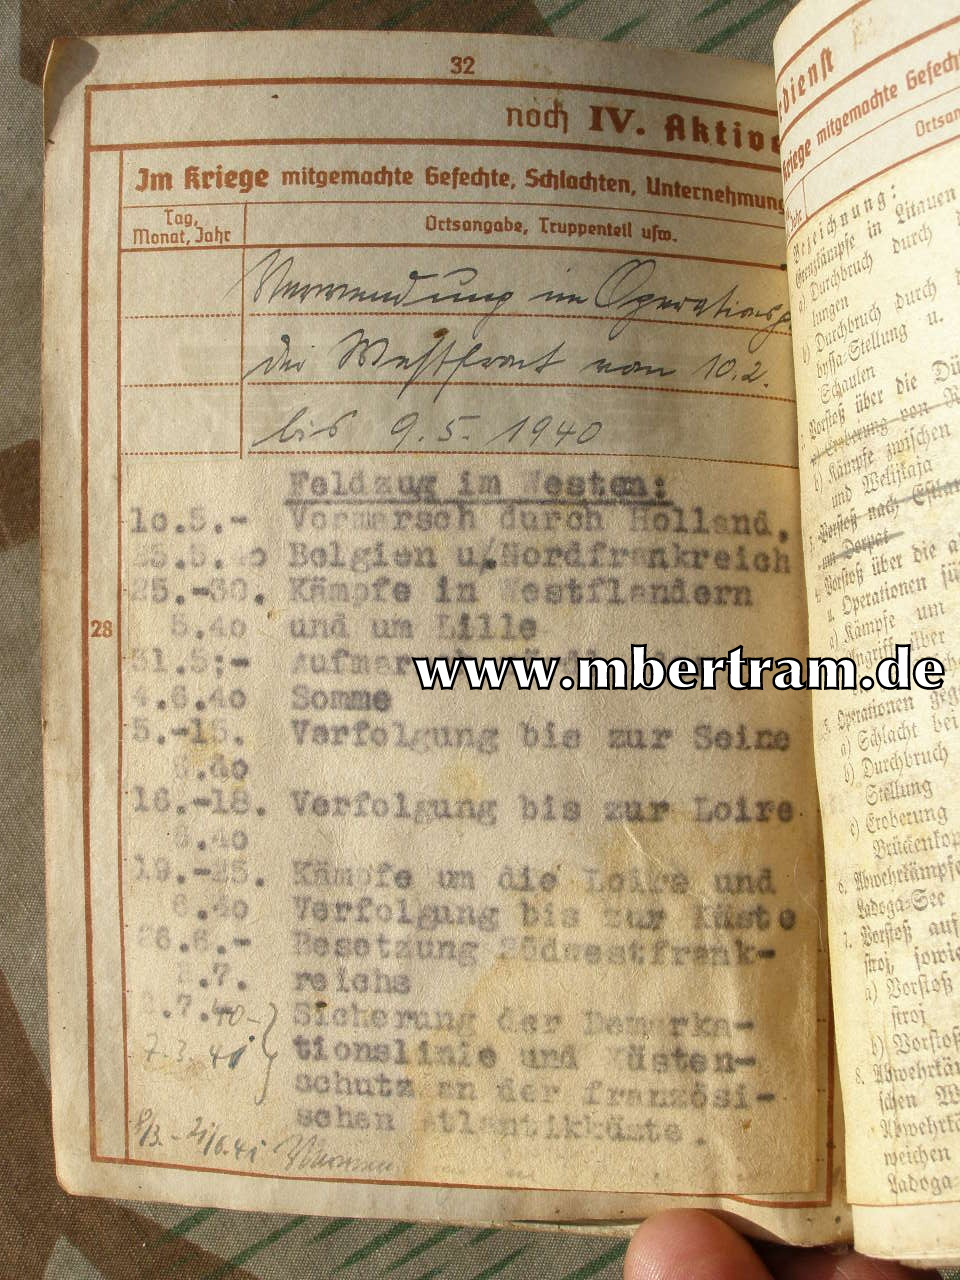 32
noch IV. Aktive
Im Kriege mitgemachte Gefechte, Schlachten, Unternehmung
Tag,
Monat, Jahr
Ortsangabe, Truppenteil usw.
Verwendung im Operationsg
der Westfront vom 10.2.
bis 9.5. 1940
Feldzug im Westen:
1o.5.- Vormarsch durch Holland,
25.5.4o Belgien u. Nordfrankreich
25.-30. Kämpfe in Westflandern
5.4o und um Lille
28
31.5.- Aufmarsch
www.mbertram.de
4.6.4o Somme
5.-15. Verfolgung bis zur Seine
6.4o
16.-18. Verfolgung bis zur Loire
6.4o
19.-25. Kämpfe um die Loire und
6.4o Verfolgung bis zur Küste
26.6.- Besetzung Südwestfrank-
7. reichs
.7.40- Sicherung der Demarka-
7.3.41 tionslinie und Küsten-
schutz an der französi-
schen Atlantikküste.
8/3. - 21/6.41
dienst
Kriege mitgemachte Gefecht
Ortsan
Jahr
Bezeichnung:
Grenzkämpfe in Litauen
a) Durchbruch durch
lungen
b) Durchbruch durch d
byssa-Stellung u.
Schaulen
Vorstoß über die Dü
a) Eroberung von
b) Kämpfe zwischen
und Welikaja
Vorstoß nach Estlan
um Dorpat
Vorstoß über die a
4. Operationen fü
a) Kämpfe um
über
5. Operationen geg
a) Schlacht bei
b) Durchbruch
Stellung
c) Eroberung
Brückenkop
6. Abwehrkämpfe
Ladoga-See
7. Vorstoß auf
stroj, sowie
a) Vorstoß
stroj
b) Vorstoß
8. Abwehrkäm
schen W
Abwehrkä
weichen
Ladoga-